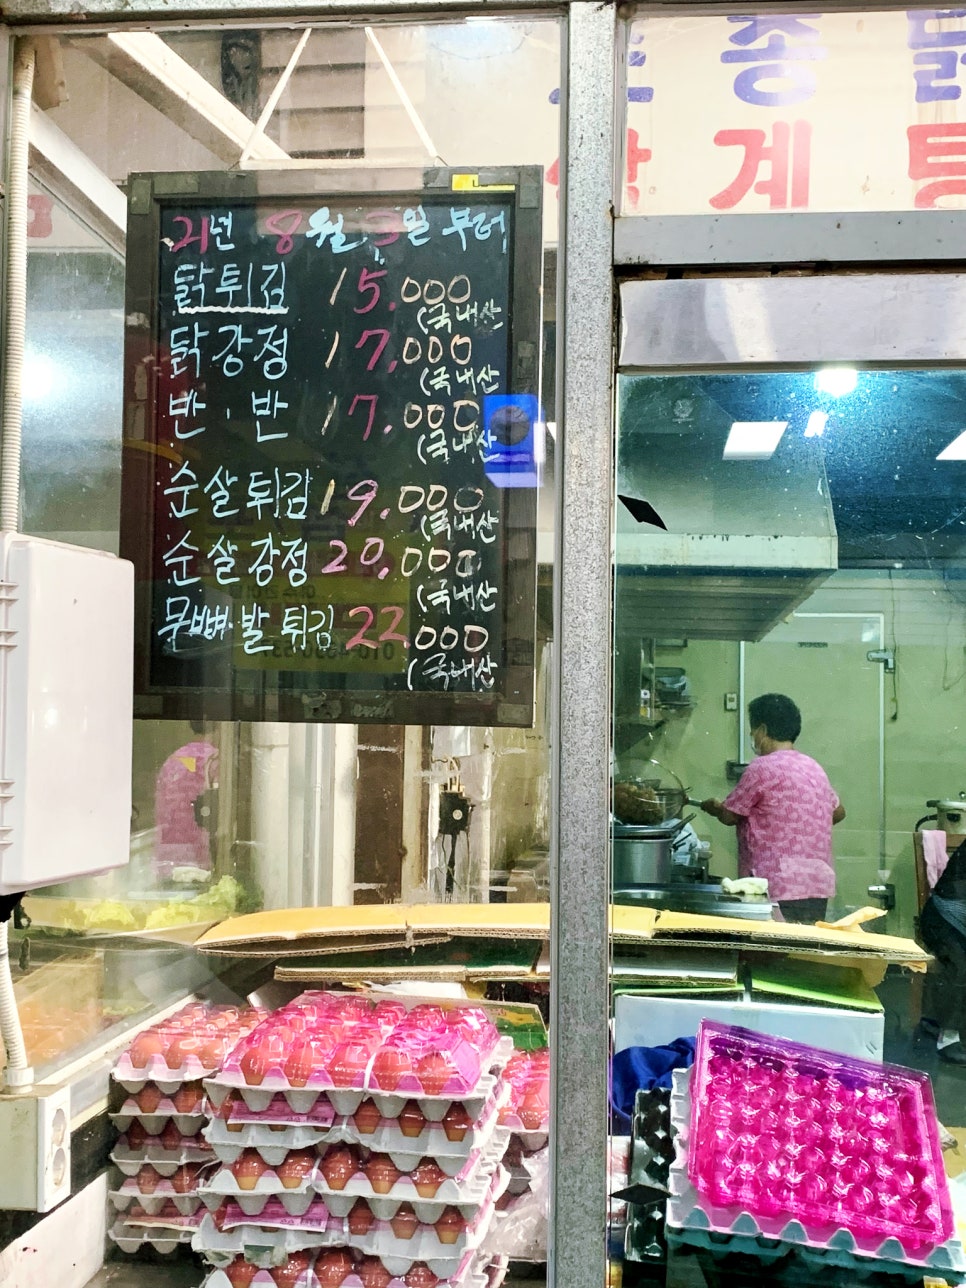 토종닭
삼계탕
21년 8월 3일 부터
닭튀김 15.000
(국내산
닭강정 17,000
(국내산
반.반 17.000
(국내산
순살튀김 19.000
(국내산
순살강정 20,000
(국내산
무뼈발튀김 22.000
(국내산